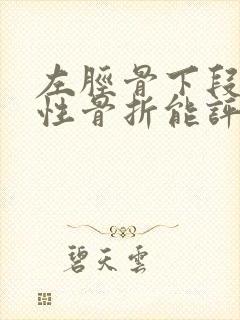 左脛骨下段
性骨折能評
碧天雲